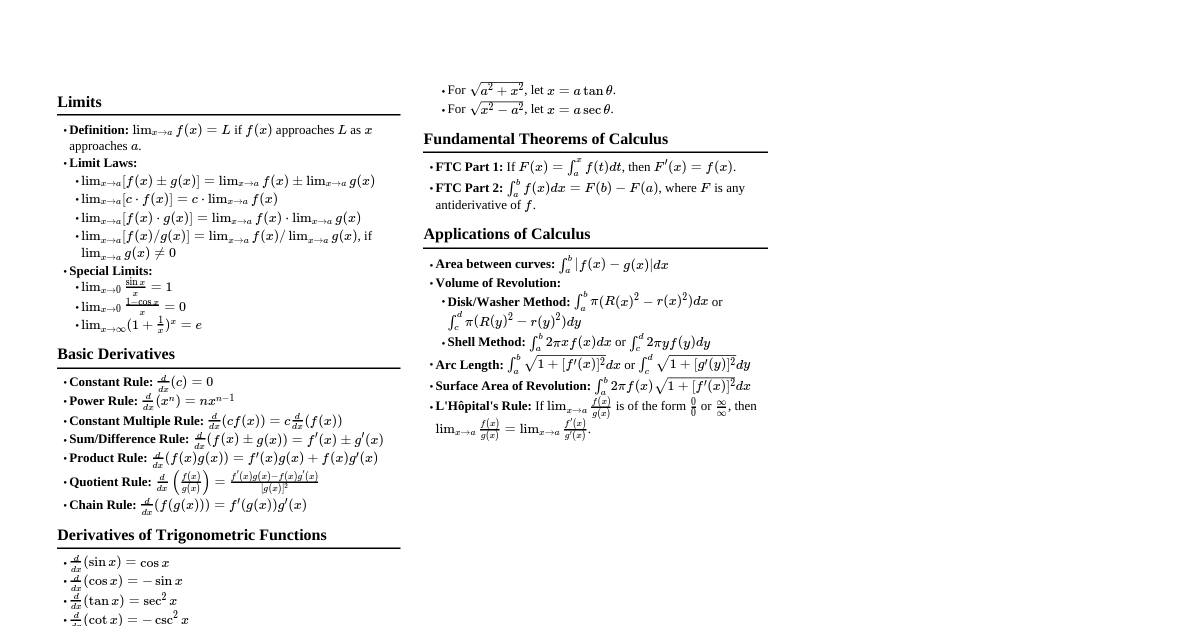 Limits
• Definition: lim_{x→a} f(x) = L if f(x) approaches L as x
approaches a.
• Limit Laws:
• lim_{x→a}[f(x) ± g(x)] = lim_{x→a} f(x) ± lim_{x→a} g(x)
• lim_{x→a}[c · f(x)] = c · lim_{x→a} f(x)
• lim_{x→a}[f(x) · g(x)] = lim_{x→a} f(x) · lim_{x→a} g(x)
• lim_{x→a}[f(x)/g(x)] = lim_{x→a} f(x)/ lim_{x→a} g(x), if
lim_{x→a} g(x) ≠ 0
• Special Limits:
• lim_{x→0} \frac{sin x}{x} = 1
• lim_{x→0} \frac{1−cos x}{x} = 0
• lim_{x→∞}(1 + \frac{1}{x})^x = e
Basic Derivatives
• Constant Rule: \frac{d}{dx}(c) = 0
• Power Rule: \frac{d}{dx}(x^n) = nx^{n−1}
• Constant Multiple Rule: \frac{d}{dx}(cf(x)) = c\frac{d}{dx}(f(x))
• Sum/Difference Rule: \frac{d}{dx}(f(x) ± g(x)) = f′(x) ± g′(x)
• Product Rule: \frac{d}{dx}(f(x)g(x)) = f′(x)g(x) + f(x)g′(x)
• Quotient Rule: \frac{d}{dx}(\frac{f(x)}{g(x)}) = \frac{f′(x)g(x)−f(x)g′(x)}{[g(x)]^2}
• Chain Rule: \frac{d}{dx}(f(g(x))) = f′(g(x))g′(x)
Derivatives of Trigonometric Functions
• \frac{d}{dx}(sin x) = cos x
• \frac{d}{dx}(cos x) = − sin x
• \frac{d}{dx}(tan x) = sec^2 x
• \frac{d}{dx}(cot x) = − csc^2 x
• For √(a^2 + x^2), let x = a tan θ.
• For √(x^2 − a^2), let x = a sec θ.
Fundamental Theorems of Calculus
• FTC Part 1: If F(x) = ∫_a^x f(t)dt, then F′(x) = f(x).
• FTC Part 2: ∫_a^b f(x)dx = F(b) − F(a), where F is any
antiderivative of f.
Applications of Calculus
• Area between curves: ∫_a^b |f(x) − g(x)|dx
• Volume of Revolution:
• Disk/Washer Method: ∫_a^b π(R(x)^2 − r(x)^2)dx or
∫_c^d π(R(y)^2 − r(y)^2)dy
• Shell Method: ∫_a^b 2πxf(x)dx or ∫_c^d 2πyf(y)dy
• Arc Length: ∫_a^b √(1 + [f′(x)]^2)dx or ∫_c^d √(1 + [g′(y)]^2)dy
• Surface Area of Revolution: ∫_a^b 2πf(x)√(1 + [f′(x)]^2)dx
• L'Hôpital's Rule: If lim_{x→a} \frac{f(x)}{g(x)} is of the form \frac{0}{0} or \frac{∞}{∞}, then
lim_{x→a} \frac{f(x)}{g(x)} = lim_{x→a} \frac{f′(x)}{g′(x)}.